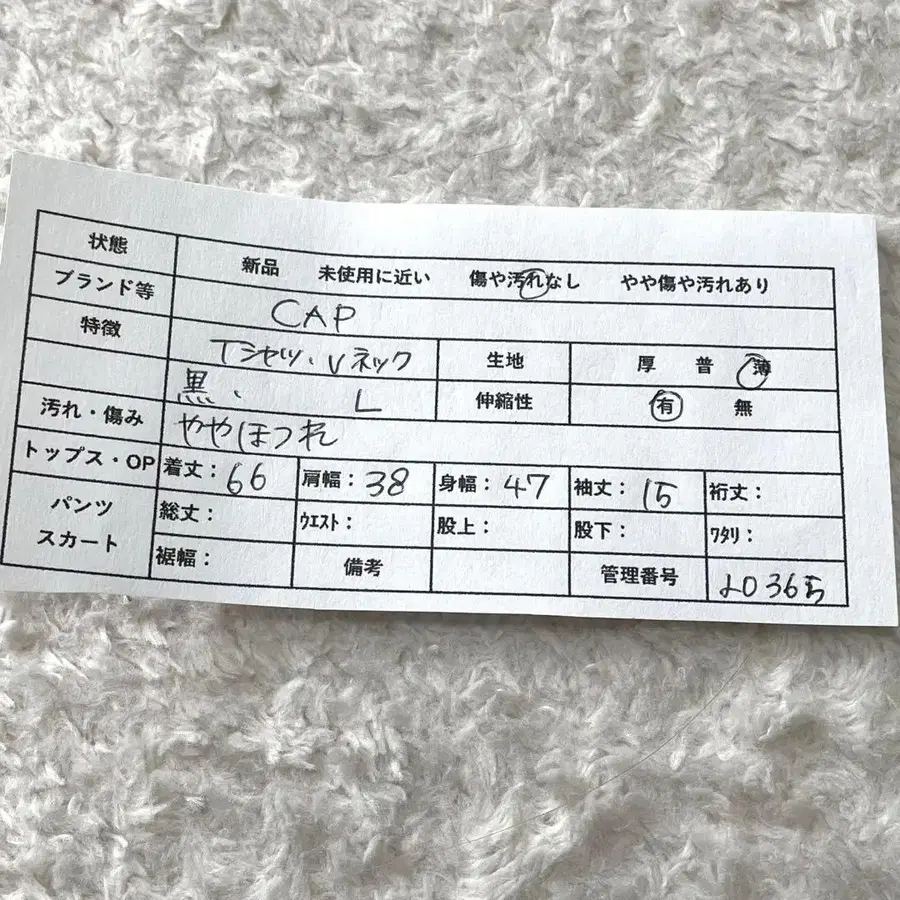 状態 新品 未使用に近い 傷や汚れなし やや傷や汚れあり
ブランド等 CAP
特徴 Tシャツ・Vネック 生地 厚 普 薄
黒・ L 伸縮性 有 無
汚れ・傷み ややほつれ
トップス・OP 着丈：66 肩幅：38 身幅：47 袖丈：15 裄丈：
パンツ スカート 総丈： ウエスト： 股上： 股下： ワタリ：
裾幅： 備考 管理番号 20365